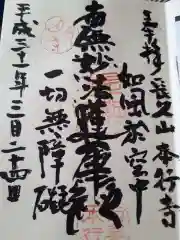 長久山 本行寺
如風於空中
南無妙法蓮華経
一切無障礙
平成三十一年三月二十四日